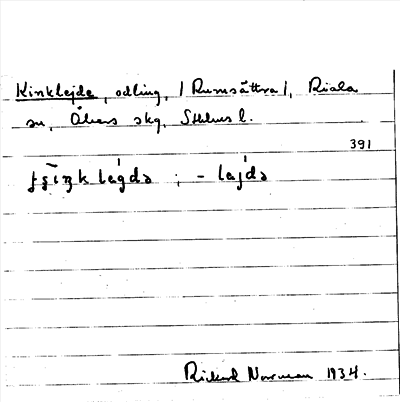 Kinklejde, odling, /Rumsättra/, Riala
sn, Åkers skg, Sthlms l.
391
; - lajdə
Rickard Norrman 1934.